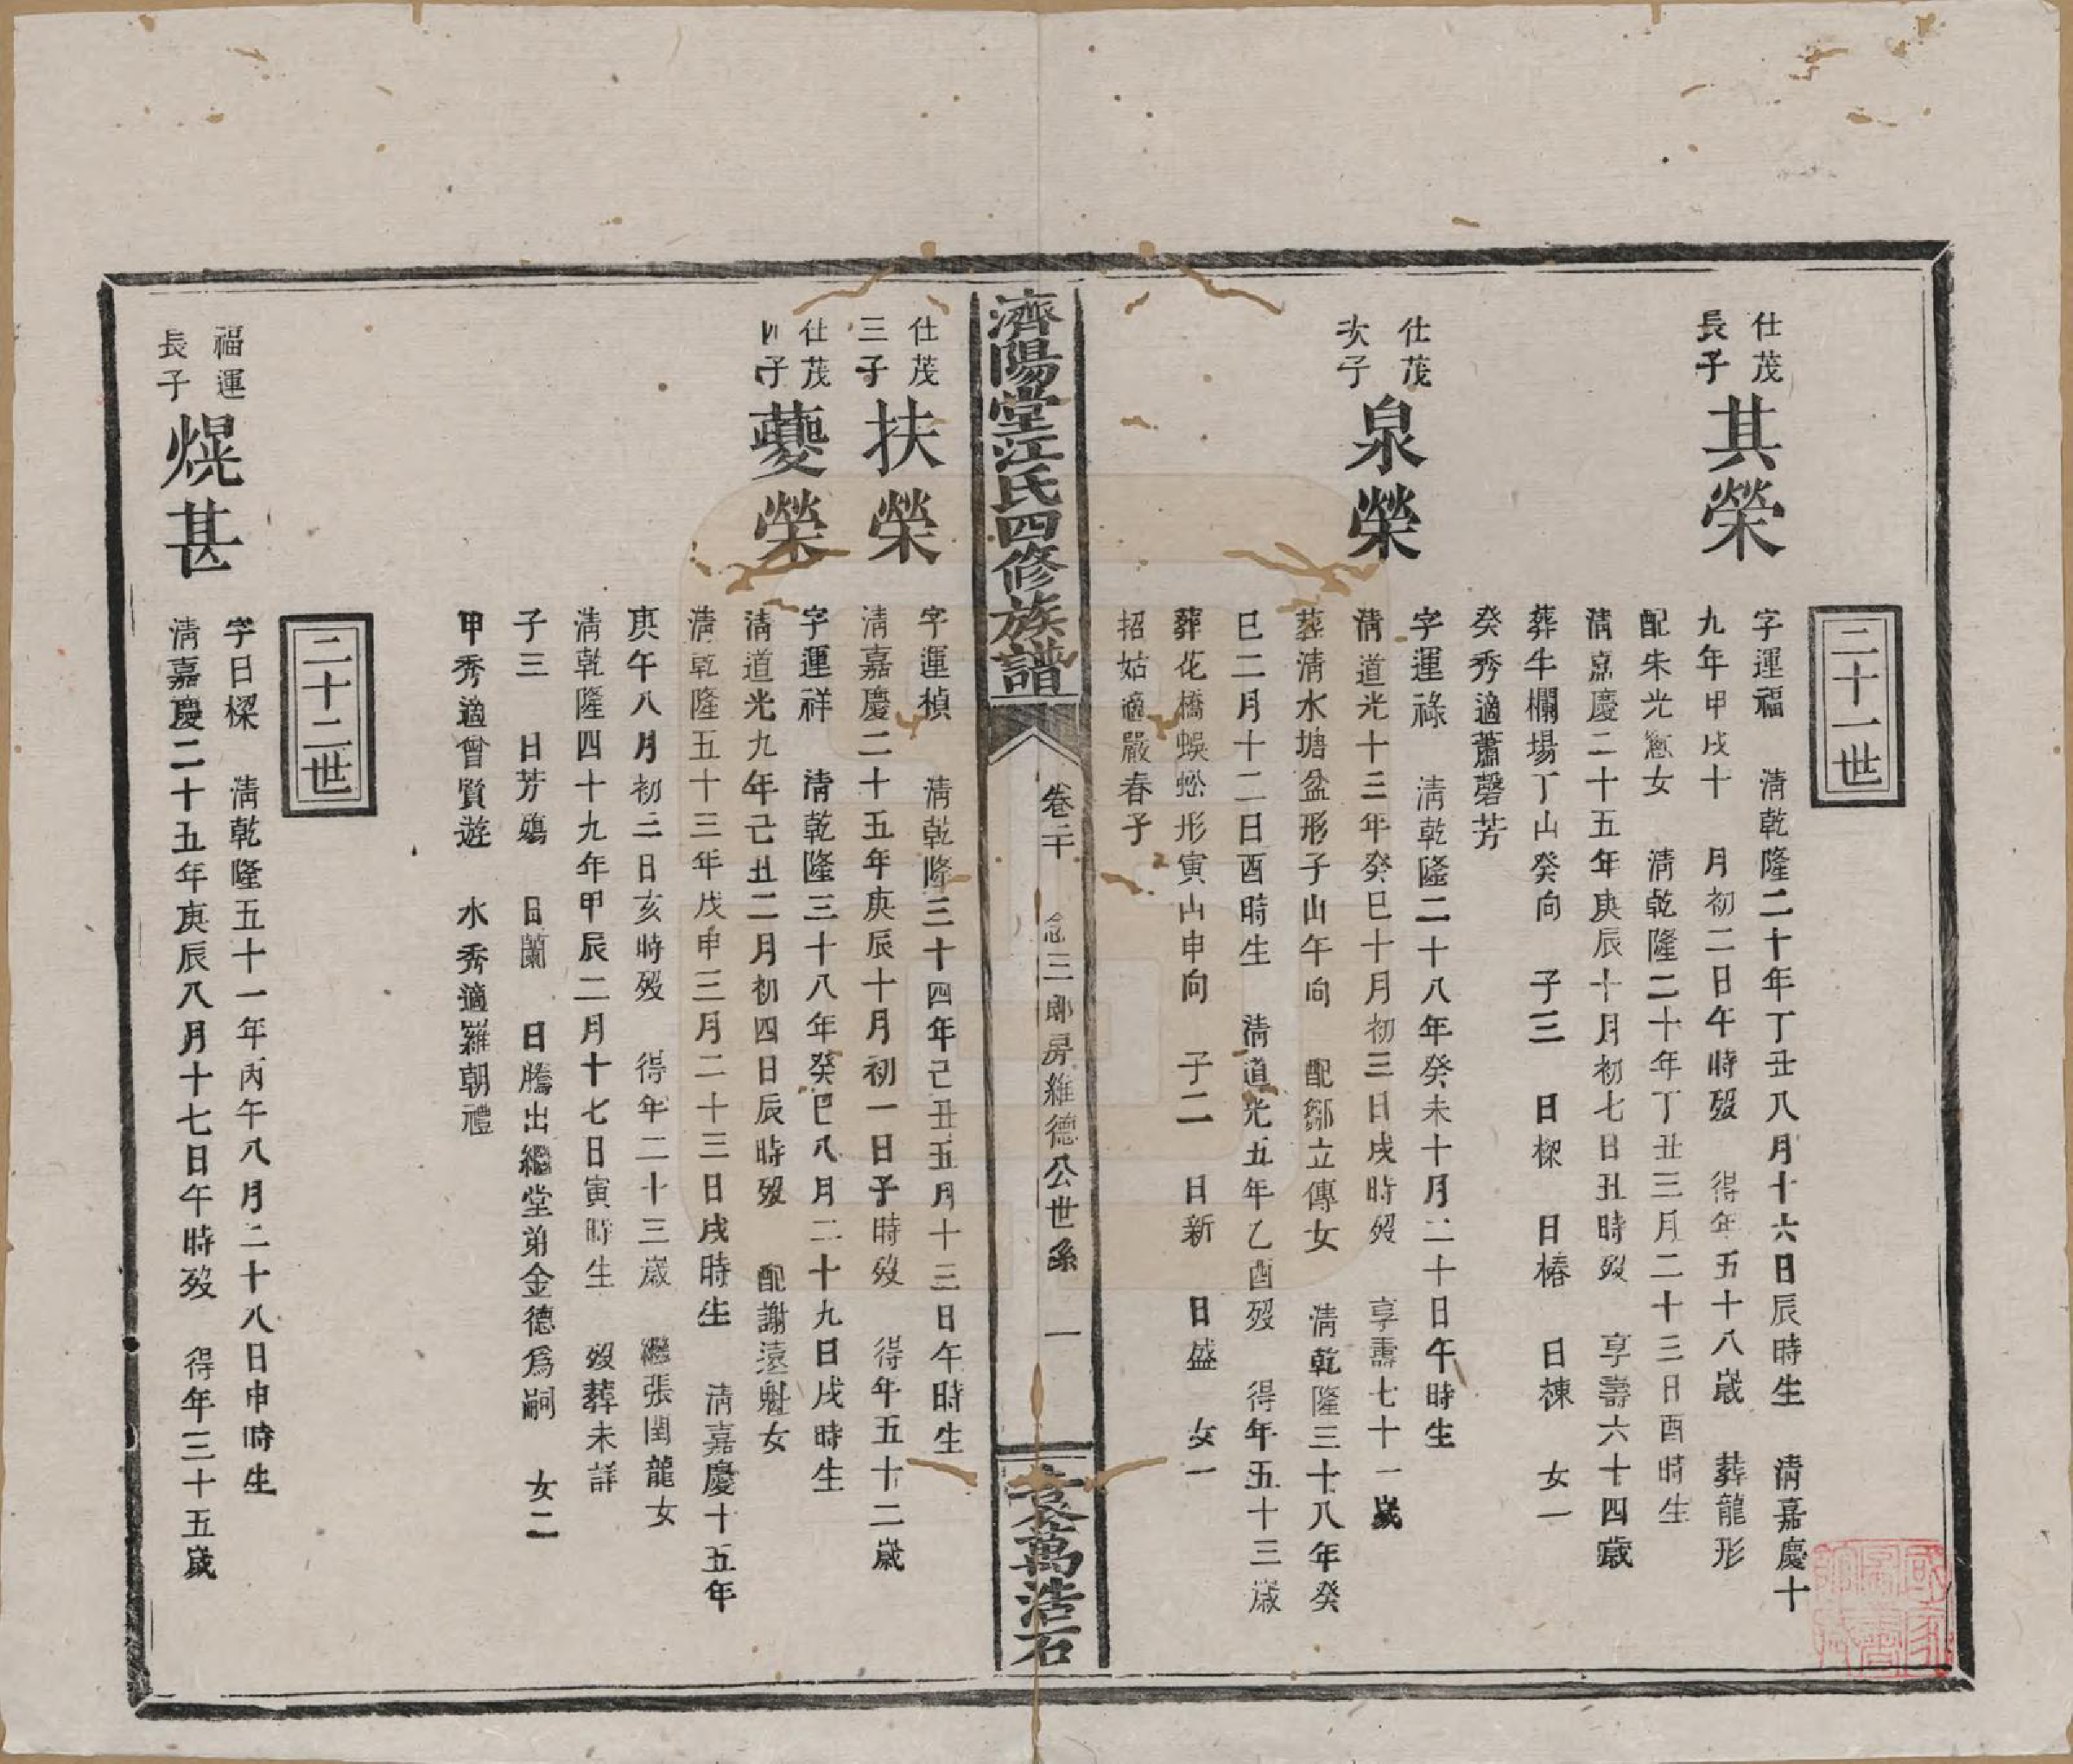 二十一世
仕茂長子
其榮
字運福 清乾隆二十年丁丑八月十六日辰時生 清嘉慶十
九年甲戌十 月初二日午時歿 得年五十八歲 葬龍形
配朱光寬女 清乾隆二十年丁丑三月二十三日酉時生
清嘉慶二十五年庚辰十月初七日丑時歿 享壽六十四歲
葬牛欄場丁山癸向 子三 日樑 日椿 日棟 女一
癸秀適蕭磬芳
仕茂次子
泉榮
字運祿 清乾隆二十八年癸未十月二十日午時生
清道光十三年癸巳十月初三日戌時歿 享壽七十一歲
葬清水塘盆形子山午向 配鄒立傳女 清乾隆三十八年癸
巳二月十二日酉時生 清道光五年乙酉歿 得年五十三歲
葬花橋蜈蚣形寅山申向 子二 日新 日盛 女一
招姑適嚴春子
濟陽堂江氏四修族譜
卷二十 念三郎房維德公世系 一
袁萬浩石
仕茂三子
扶榮
字運楨 清乾隆三十四年己丑五月十三日午時生
清嘉慶二十五年庚辰十月初一日子時歿 得年五十二歲
仕茂四子
夔榮
字運祥 清乾隆三十八年癸巳八月二十九日戌時生
清道光九年己丑二月初四日辰時歿 配謝遠魁女
清乾隆五十三年戊申三月二十三日戌時生 清嘉慶十五年
庚午八月初二日亥時歿 得年二十三歲 繼張閏龍女
清乾隆四十九年甲辰二月十七日寅時生 歿葬未詳
子三 日芳殤 日蘭 日騰出繼堂弟金德爲嗣 女二
甲秀適曾質遊 水秀適羅朝禮
二十二世
福運長子
熀甚
字日樑 清乾隆五十一年丙午八月二十八日申時生
清嘉慶二十五年庚辰八月十七日午時歿 得年三十五歲